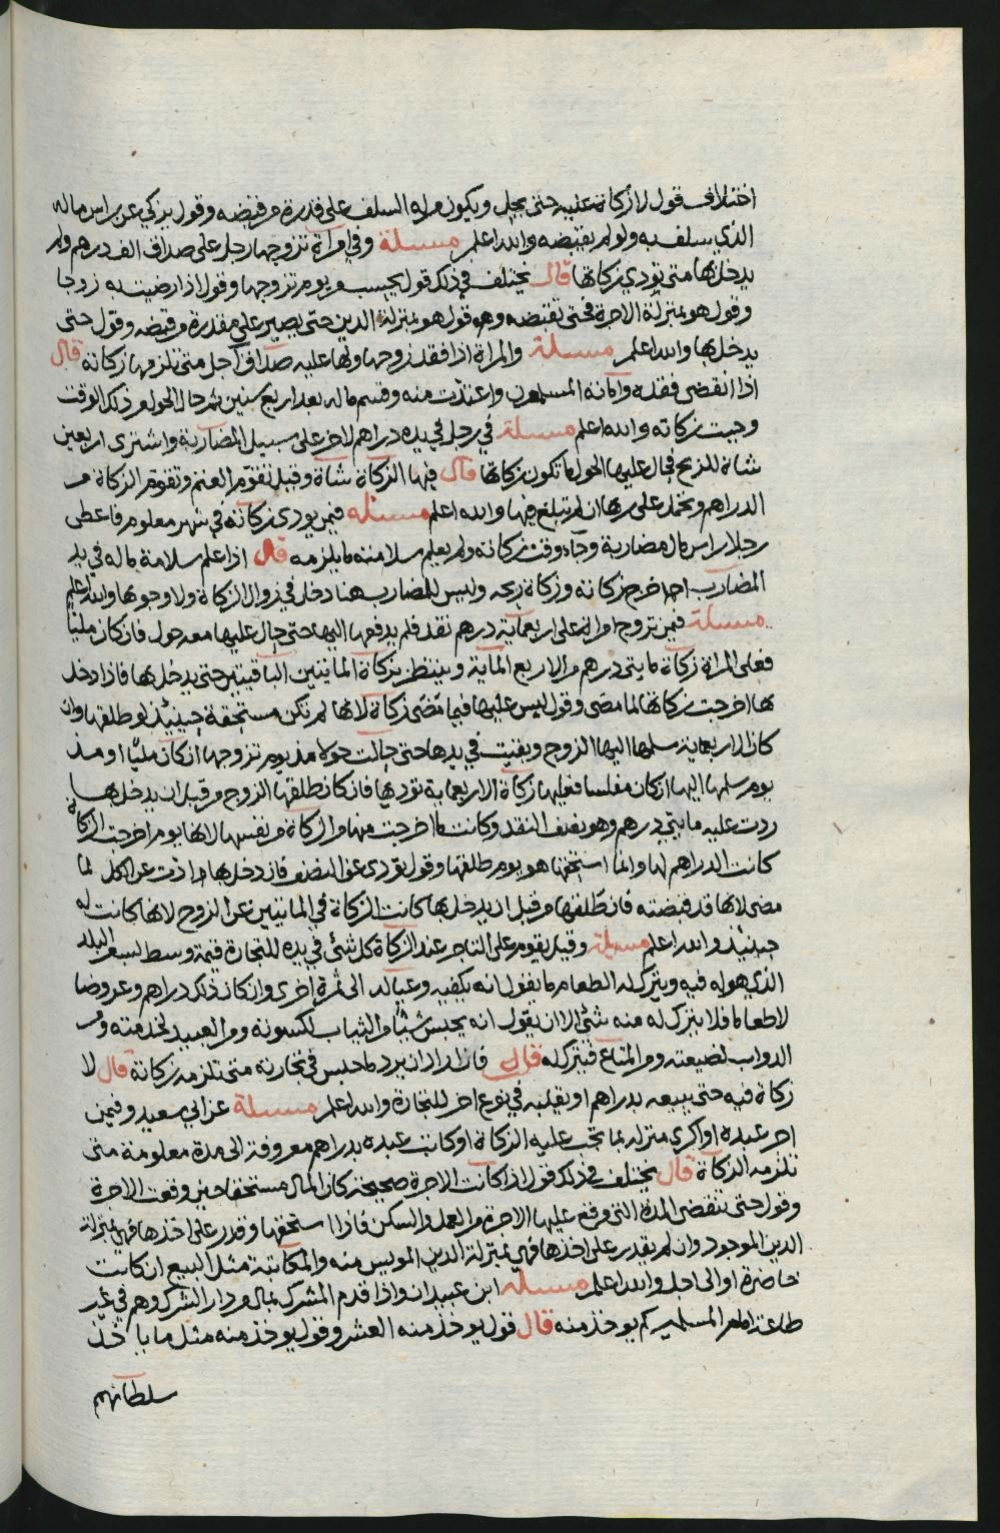 اختلاف قول لا زكاة عليه حتى يحل ويكون مراه السلف على قدرة من قبضه وقول يزكي عن راس ماله
الذي سلف به ولو لم يقبضه والله اعلم مسئلة وفي امراة تزوجها رجل على صداق الف درهم ولم
يدخل بها متى تودي زكاتها قال يختلف في ذلك قول يحسب من يوم تزوجها وقول اذا رضيت به زوجا
وقول هو بمنزلة الاجرة فحتى تقبضه وهو قول هو بمنزلة الدين حتى يصير على مقدرة من قبضه وقول حتى
يدخل بها والله اعلم مسئلة والمراة اذا فقد زوجها ولها عليه صداق آجل متى تلزمها زكاته قال
اذا انقضى فقده واماته المسلمون واعتدت منه وقسم ماله بعد اربع سنين ثم حال الحول من ذلك الوقت
وجبت زكاته والله اعلم مسئلة في رجل في يده دراهم لاخر على سبيل المضاربة واشترى اربعين
شاة للربح فحال عليها الحول ما تكون زكاتها قال فيها الزكاة شاة وقيل تقوم الغنم وتقوم الزكاة من
الدراهم وتحمل على ربها ان لم تبلغ فيها والله اعلم مسئله فيمن يودي زكاته في شهر معلوم فاعطى
رجلا راس مال مضاربة وجاء وقت زكاته ولم يعلم سلامته ما يلزمه قال اذا علم سلامة ماله في يد
المضارب اخرج زكاته وزكاة ربحه وليس للمضارب هنا دخل في زوال الزكاة ولا وجوبها والله اعلم
مسئلة فيمن تزوج امراة على اربعماية درهم نقد فلم يدفعها اليها حتى حال عليها معه حول فان كان مليا
فعلى المراة زكاة مايتي درهم من الاربع الماية وينتظر بزكاة المايتين الباقيتين حتى يدخل بها فاذا دخل
بها اخرجت زكاتها لما مضى وقول ليس عليها فيما مضى زكاة لانها لم تكن مستحقة حينئذ لو طلقها وان
كان الاربعماية سلمها اليها الزوج وبقيت في يدها حتى حالت حولا مذ يوم تزوجها ان كان مليا او مذ
يوم سلمها اليها ان كان مفلسا فعليها زكاة الاربعماية تؤديها فان كان طلقها الزوج من قبل ان يدخل بها
ردت عليه مايتي درهم وهو نصف النقد وكانت ما اخرجت منها من الزكاة من نفسها لانها يوم اخرجت الزكاة
كانت الدراهم لها وانما استحقها هو يوم طلقها وقول تؤدي عن النصف فان دخل بها ادت عن الكل لما
مضى لانها قد قبضته فان طلقها من قبل ان يدخل بها كانت الزكاة في المايتين عن الزوج لانها كانت له
حينئذ والله اعلم مسئلة وقيل يقوم على التاجر عند الزكاة كل شئ في يده للتجارة قيمة وسط لسعر البلد
الذي هو له فيه ويترك له الطعام ما يقول انه يكفيه وعياله الى ثمرة اخرى وان كان ذلك دراهم وعروضا
لا طعاما فلا يترك له منه شئ الا ان يقول انه يحبس شيئا من الثياب لكسوته ومن العبيد لخدمته ومن
الدواب لضيعته ومن المتاع فيترك له قال فان اراد ان يرد ما حبس في تجارته متى تلزمه زكاته قال لا
زكاة فيه حتى يبيعه بدراهم او يقلبه في نوع اخر للتجارة والله اعلم مسئلة عن ابي سعيد وفيمن
اجر عبده او اكرى منزله بما تجب عليه الزكاة او كاتب عبده بدراهم معروفة الى مدة معلومة متى
تلزمه الزكاة قال يختلف في ذلك قول اذا كانت الاجرة صحيحة كان المال مستحقا حين وقعت الاجرة
وقول حتى تنقضي المدة التي وقع عليها الاجرة من العمل والسكن فاذا استحقها وقدر على اخذها فهي بمنزلة
الدين الموجود وان لم يقدر على اخذها فهي بمنزلة الدين المويس منه والمكاتبة مثل البيع ان كانت
حاضرة او الى اجل والله اعلم مسئله ابن عبيدان واذا قدم المشرك بمال من دار الشرك وهم في غير
طاعة امام المسلمين كم يوخذ منه قال قول يوخذ منه العشر وقول يوخذ منه مثل ما ياخذ
سلطانهم